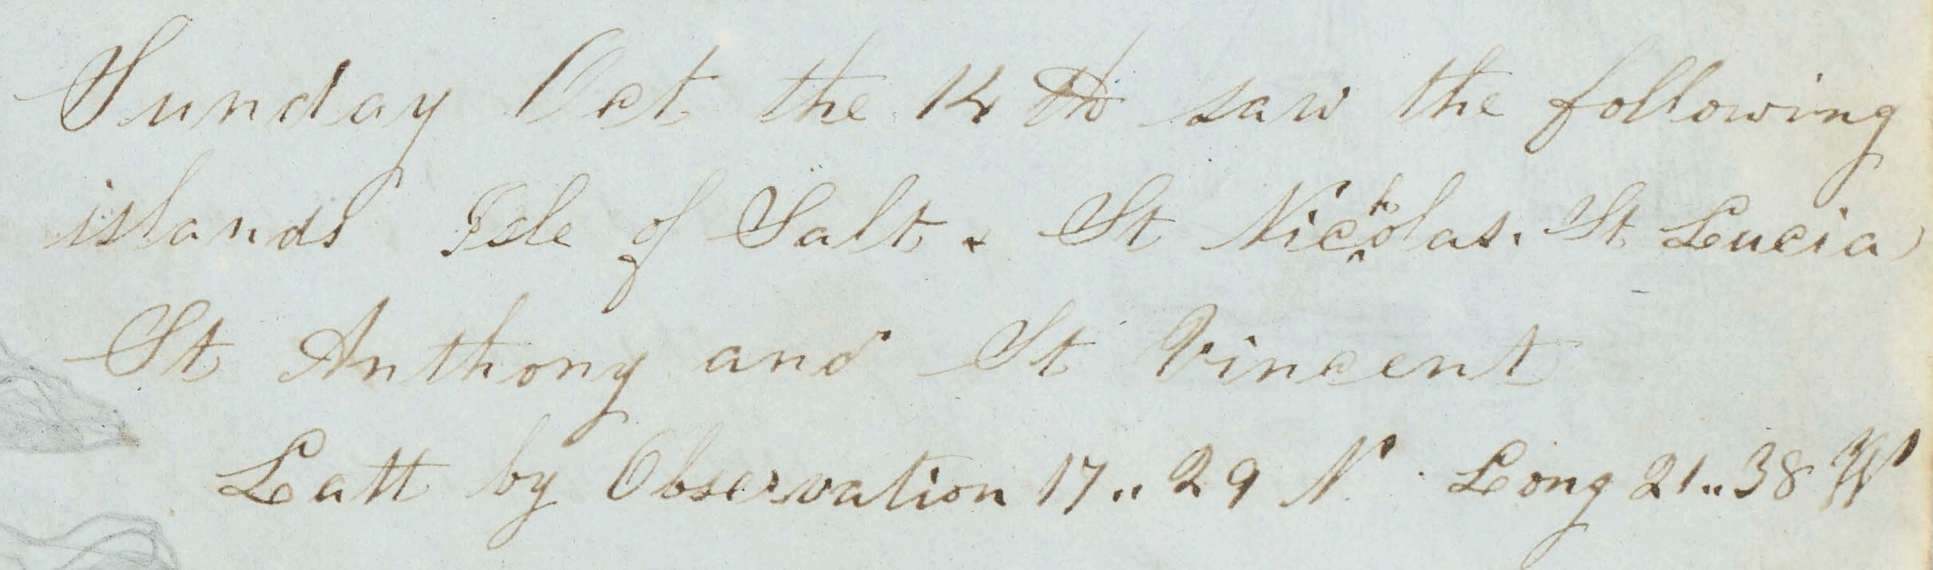 Sunday Oct the 14th saw the following
islands Isle of Salt. St Nicholas. St Lucia
St Anthony and St Vincent
Latt by Observation 17.. 29 N. Long 21.. 38 W